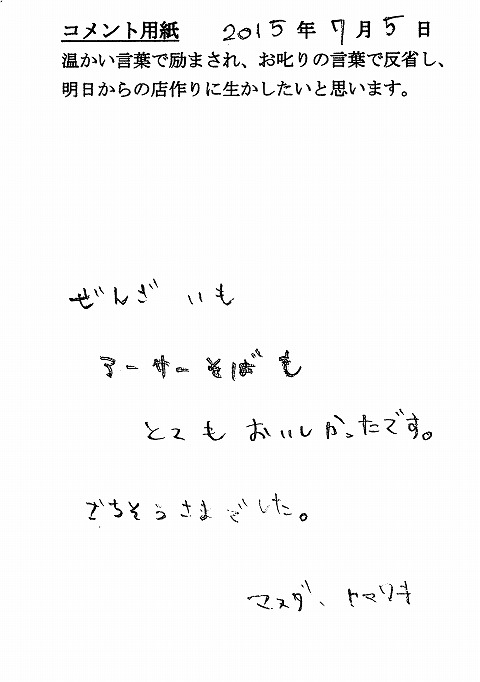 コメント用紙 2015年7月5日
温かい言葉で励まされ、お叱りの言葉で反省し、
明日からの店作りに生かしたいと思います。
ぜんざいも
アーサーそばも
とてもおいしかったです。
ごちそうさまでした。
マスダ、トマリキ